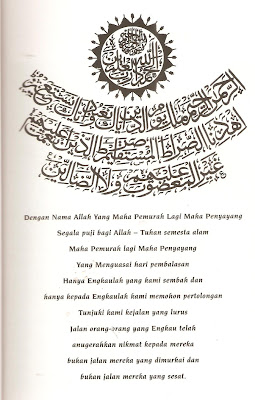 الحمد لله رب العالمين
الرحمن الرحيم ملك يوم الدين إياك نعبد وإياك نستعين
اهدنا الصراط المستقيم صراط الذين أنعمت عليهم
غير المغضوب عليهم ولا الضالين
Dengan Nama Allah Yang Maha Pemurah Lagi Maha Penyayang
Segala puji bagi Allah – Tuhan semesta alam
Maha Pemurah lagi Maha Penyayang
Yang Menguasai hari pembalasan
Hanya Engkaulah yang kami sembah dan
hanya kepada Engkaulah kami memohon pertolongan
Tunjuki kami kejalan yang lurus
Jalan orang-orang yang Engkau telah
anugerahkan nikmat kepada mereka
bukan jalan mereka yang dimurkai dan
bukan jalan mereka yang sesat.